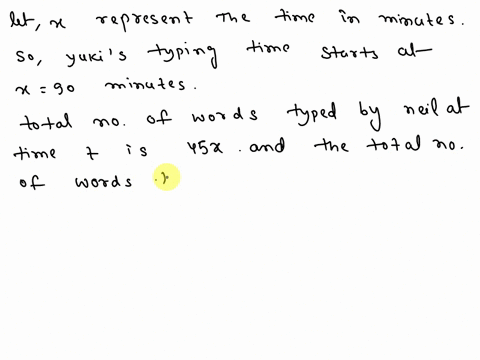 let, x represent the time in minutes.
So, yuki's typing time starts at
x = 90 minutes.
total no. of words typed by neil at
time t is 45x. and the total no.
of words